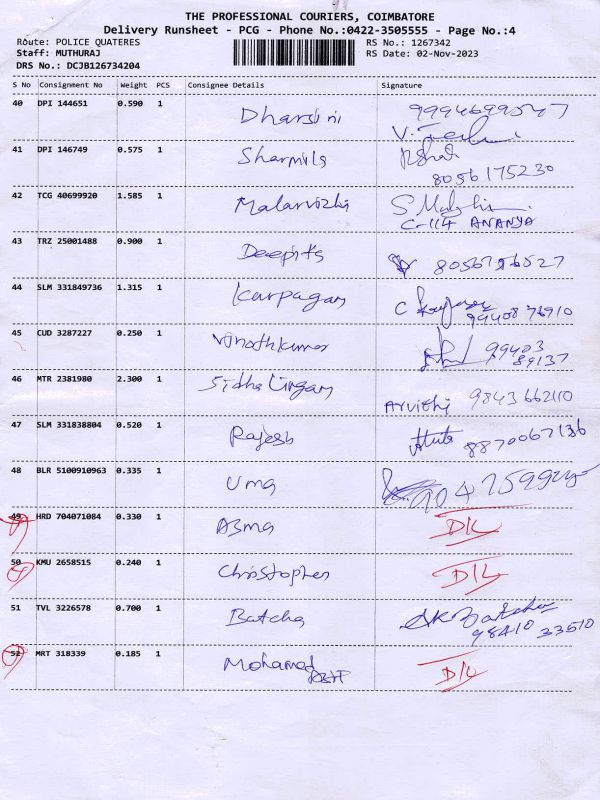 THE PROFESSIONAL COURIERS, COIMBATORE
Delivery Runsheet - PCG - Phone No.:0422-3505555 - Page No.:4
Route: POLICE QUATERES
Staff: MUTHURAJ
DRS No.: DCJB126734204
RS No.: 1267342
RS Date: 02-Nov-2023
S No Consignment No Weight PCS Consignee Details Signature
40 DPI 144651 0.590 1 Dharsini
41 DPI 146749 0.575 1 Sharmila
8056175230
42 TCG 40699920 1.585 1 Malarvizhi
C-114 ANANYA
43 TRZ 25001488 0.900 1 Deepits 8056756527
44 SLM 331849736 1.315 1 Karpagam
9940876910
45 CUD 3287227 0.250 1 Vinothkumar 99403
89137
46 MTR 2381980 2.300 1 Sidhalingam
9843662110
47 SLM 331838804 0.520 1 Rajesh
8870067136
48 BLR 5100910963 0.335 1 Uma
49 HRD 704071084 0.330 1 Asma D/L
50 KMU 2658515 0.240 1 Christopher D/L
51 TVL 3226578 0.700 1 Batcha
98410 33510
52 MRT 318339 0.185 1 Mohamed D/L